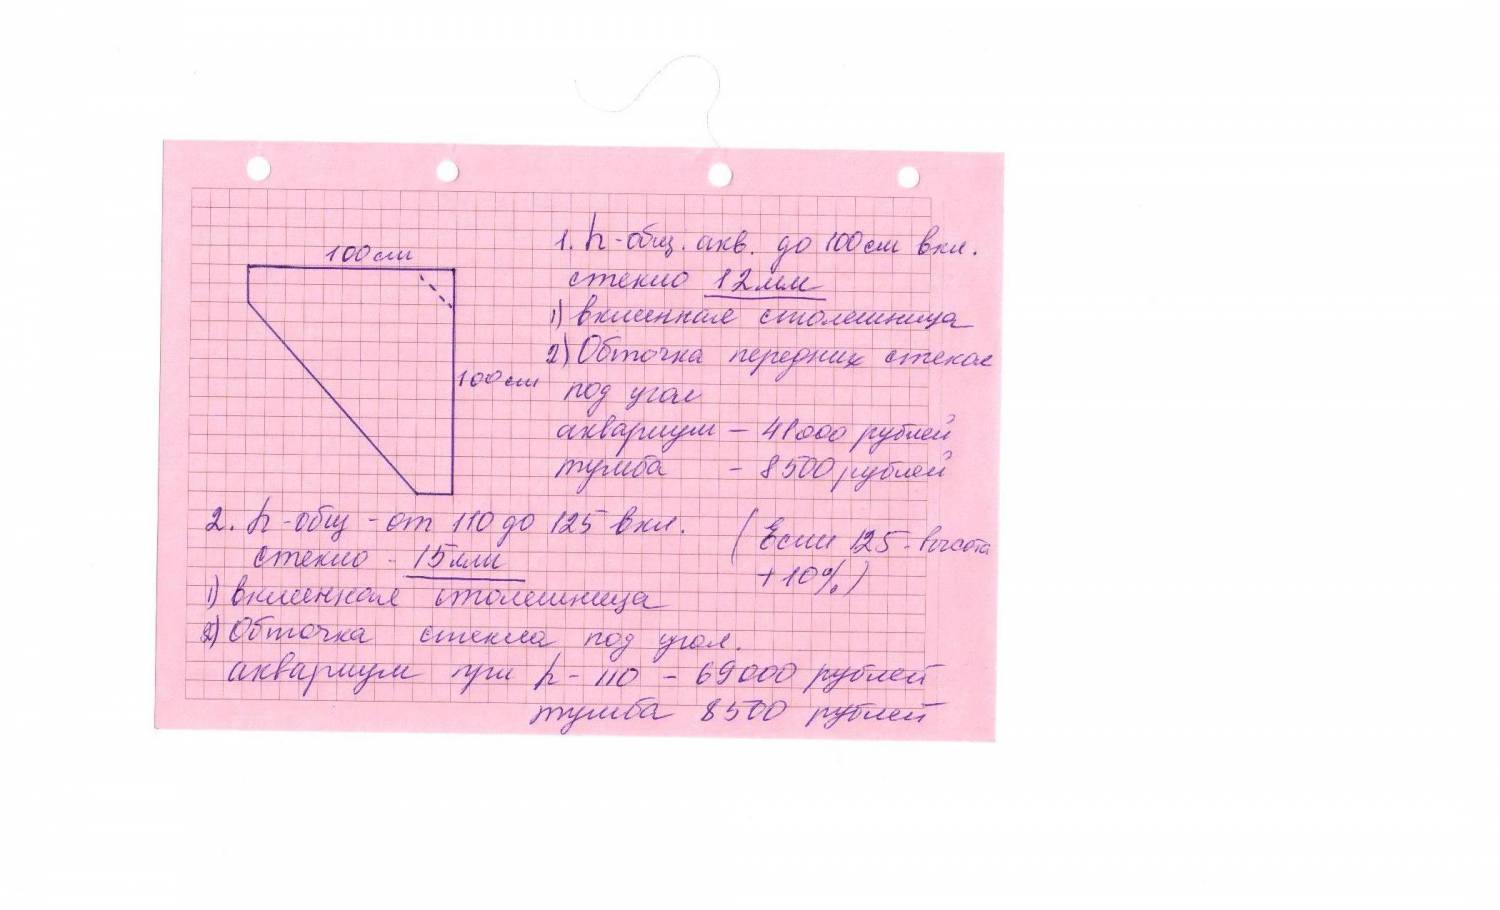 100см
100см
1. h-общ. акв. до 100см вкл.
стекло 12мм
1) вклеенная столешница
2) Обточка передних стекол
под угол
аквариум – 41000 рублей
тумба – 8500 рублей
2. h-общ - от 110 до 125 вкл.
(Если 125 - высота
+10%)
стекло - 15мм
1) вклеенная столешница
2) Обточка стекла под угол.
аквариум при h - 110 - 69000 рублей
тумба 8500 рублей